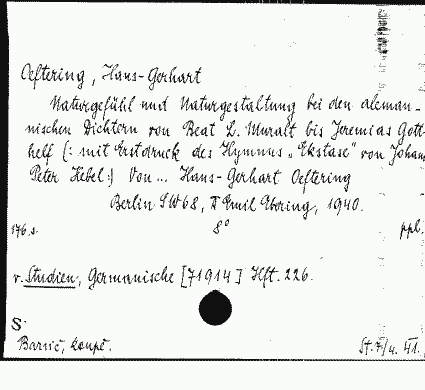 Oeftering, Hans-Gerhart
Naturgefühl und Naturgestaltung bei den aleman-
nischen Dichtern von Beat L. Muralt bis Jeremias Gott-
helf (: mit Erstdruck des Hymnus „Ekstase" von Johann
Peter Hebel :) Von ... Hans-Gerhart Oeftering
Berlin SW 68, Emil Ebering, 1940.
176 s. 8° ppl.
v. Studien, Germanische [71914] Hft. 226.
S:
Barsić, koupě.